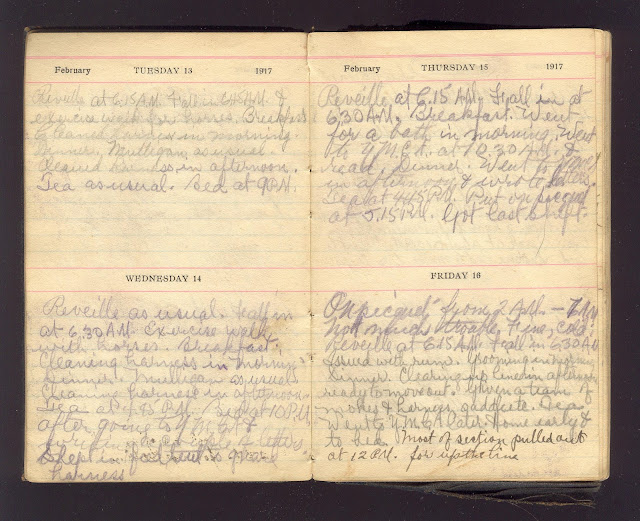 February TUESDAY 13 1917
Reveille at 6.15 A.M. Fall in 6.45 A.M. &
exercise walk for horses. Breakfast
Cleaned harness in morning.
Dinner, Mulligan as usual.
Cleaned harness in afternoon.
Tea as usual. Bed at 9 P.M.
WEDNESDAY 14
Reveille as usual. Fall in
at 6.30 A.M. exercise walk
with horses. Breakfast.
Cleaning harness in morning
Dinner. Mulligan as usual
Cleaning harness in afternoon.
Tea at P.M. Bed at 10 P.M.
after going to Y.M.C.A. &
writing a couple letters
harness
February THURSDAY 15 1917
Reveille at 6.15 A.M. Fall in at
6.30 A.M. Breakfast. Went
for a bath in morning. Went
to Y.M.C.A. at 10.30 A.M. &
read. Dinner. Went to Y.M.C.A
in afternoon & wrote
Tea at 4.45 P.M. Put on picquet
at 5.15 P.M. Got last shift.
FRIDAY 16
On picquet from 2 A.M. –
Not much trouble. Fine, cold
reveille at 6.15 A.M. Fall in 6.30 A.M.
Issued with rum. Grooming in morning
Dinner. Clearing up lines in afternoon
ready to move out. Given a team of
& harness saddlete. Tea
Went to Y.M.C.A. later. Home early &
to bed. Most of section pulled out
at 12 A.M. for up the line